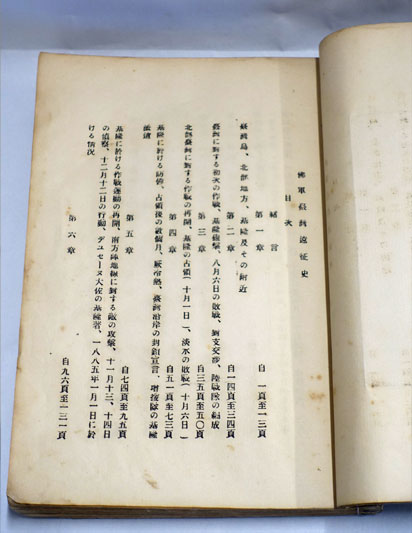 佛軍臺灣遠征史
目次
緒言
第一章 自一頁至一三頁
臺灣島、北部地方、基隆及其の附近
第二章 自一四頁至三四頁
臺灣に對する初次の作戰、基隆砲擊、八月六日の敗戰、對支交涉、陸戰隊の編成
第三章 自三五頁至五〇頁
北部臺灣に對する作戰の再開、基隆の占領(十月一日)、淡水の敗戰(十月八日)
第四章 自五一頁至七三頁
基隆に於ける防備、占領後の數個月、臺灣沿岸の封鎖宣言、增援隊の基隆
第五章 自七四頁至九五頁
基隆に於ける作戰運動の再開、南方陣地線に對する敵の攻擊、十一月十三、十四日
の偵察、十二月十二日の行動、デュセーヌ大佐の基隆著、一八八五年一月一日に於
ける情況
第六章 自九六頁至一三一頁